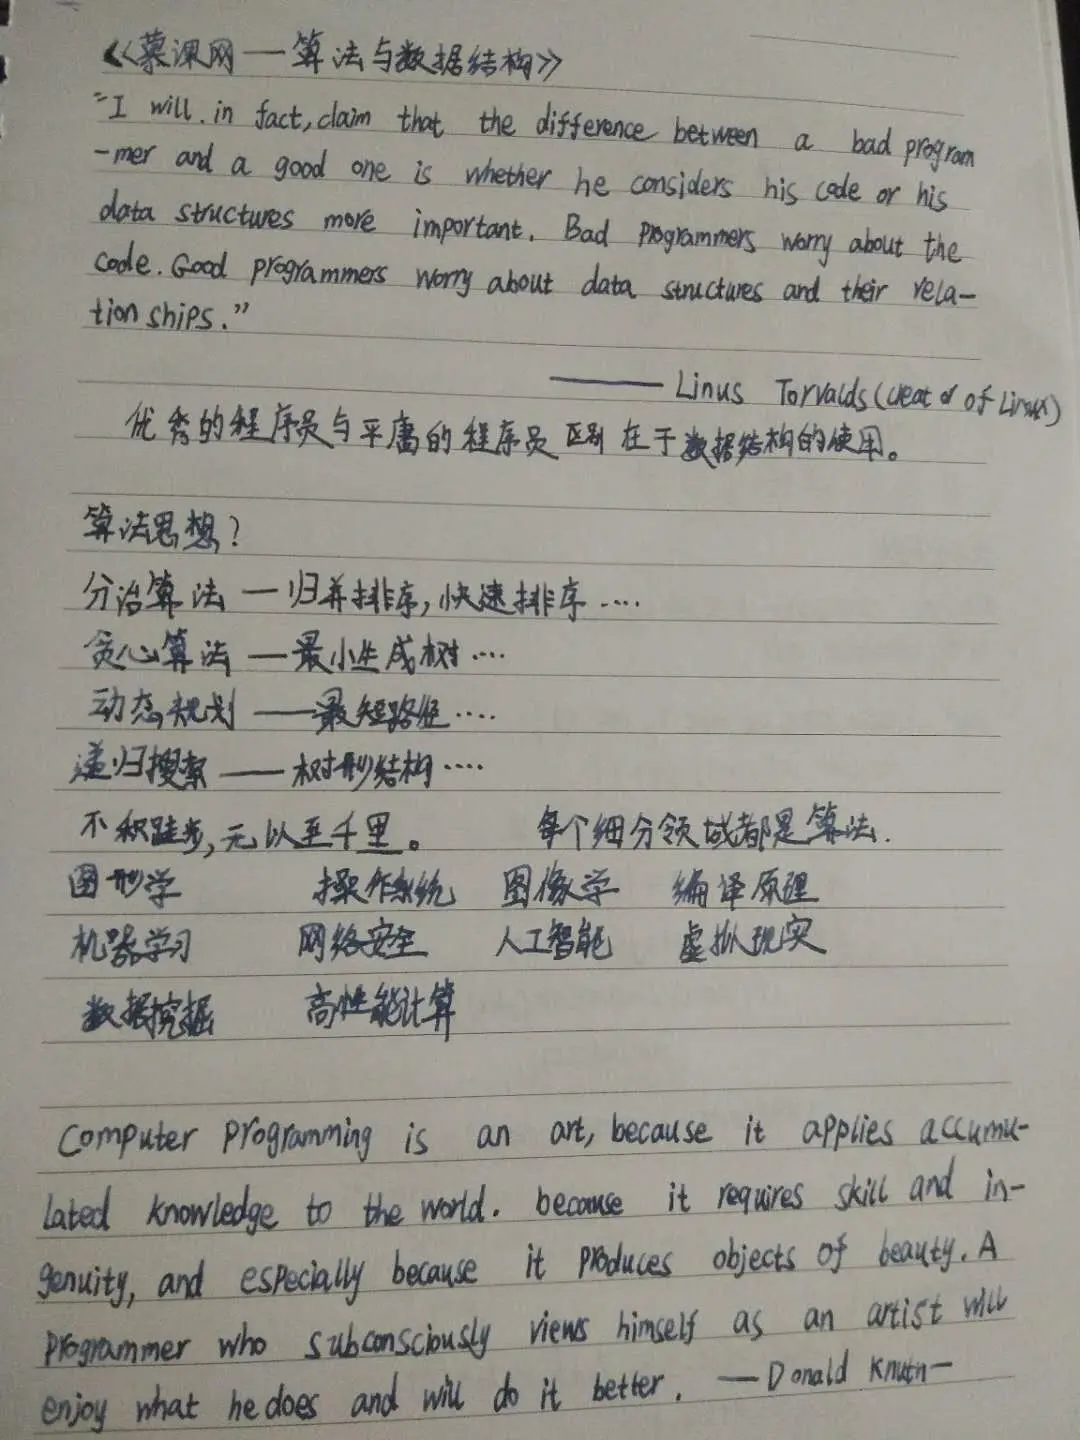 《慕课网——算法与数据结构》
"I will. in fact, claim that the difference between a bad program
-mer and a good one is whether he considers his code or his
data structures more important. Bad programmers worry about the
code. Good programmers worry about data structures and their rela-
tionships."
——— Linus Torvalds (creat of Linux)
优秀的程序员与平庸的程序员区别在于数据结构的使用。
算法思想?
分治算法 — 归并排序, 快速排序 ....
贪心算法 — 最小生成树 ....
动态规划 —— 最短路径 ....
递归搜索 —— 树形结构 ....
不积跬步, 无以至千里。 每个细分领域都是算法.
图形学 操作系统 图像学 编译原理
机器学习 网络安全 人工智能 虚拟现实
数据挖掘 高性能计算
Computer programming is an art, because it applies accumu-
lated knowledge to the world. because it requires skill and in-
genuity, and especially because it produces objects of beauty. A
programmer who subconsciously views himself as an artist will
enjoy what he does and will do it better. — Donald Knuth —